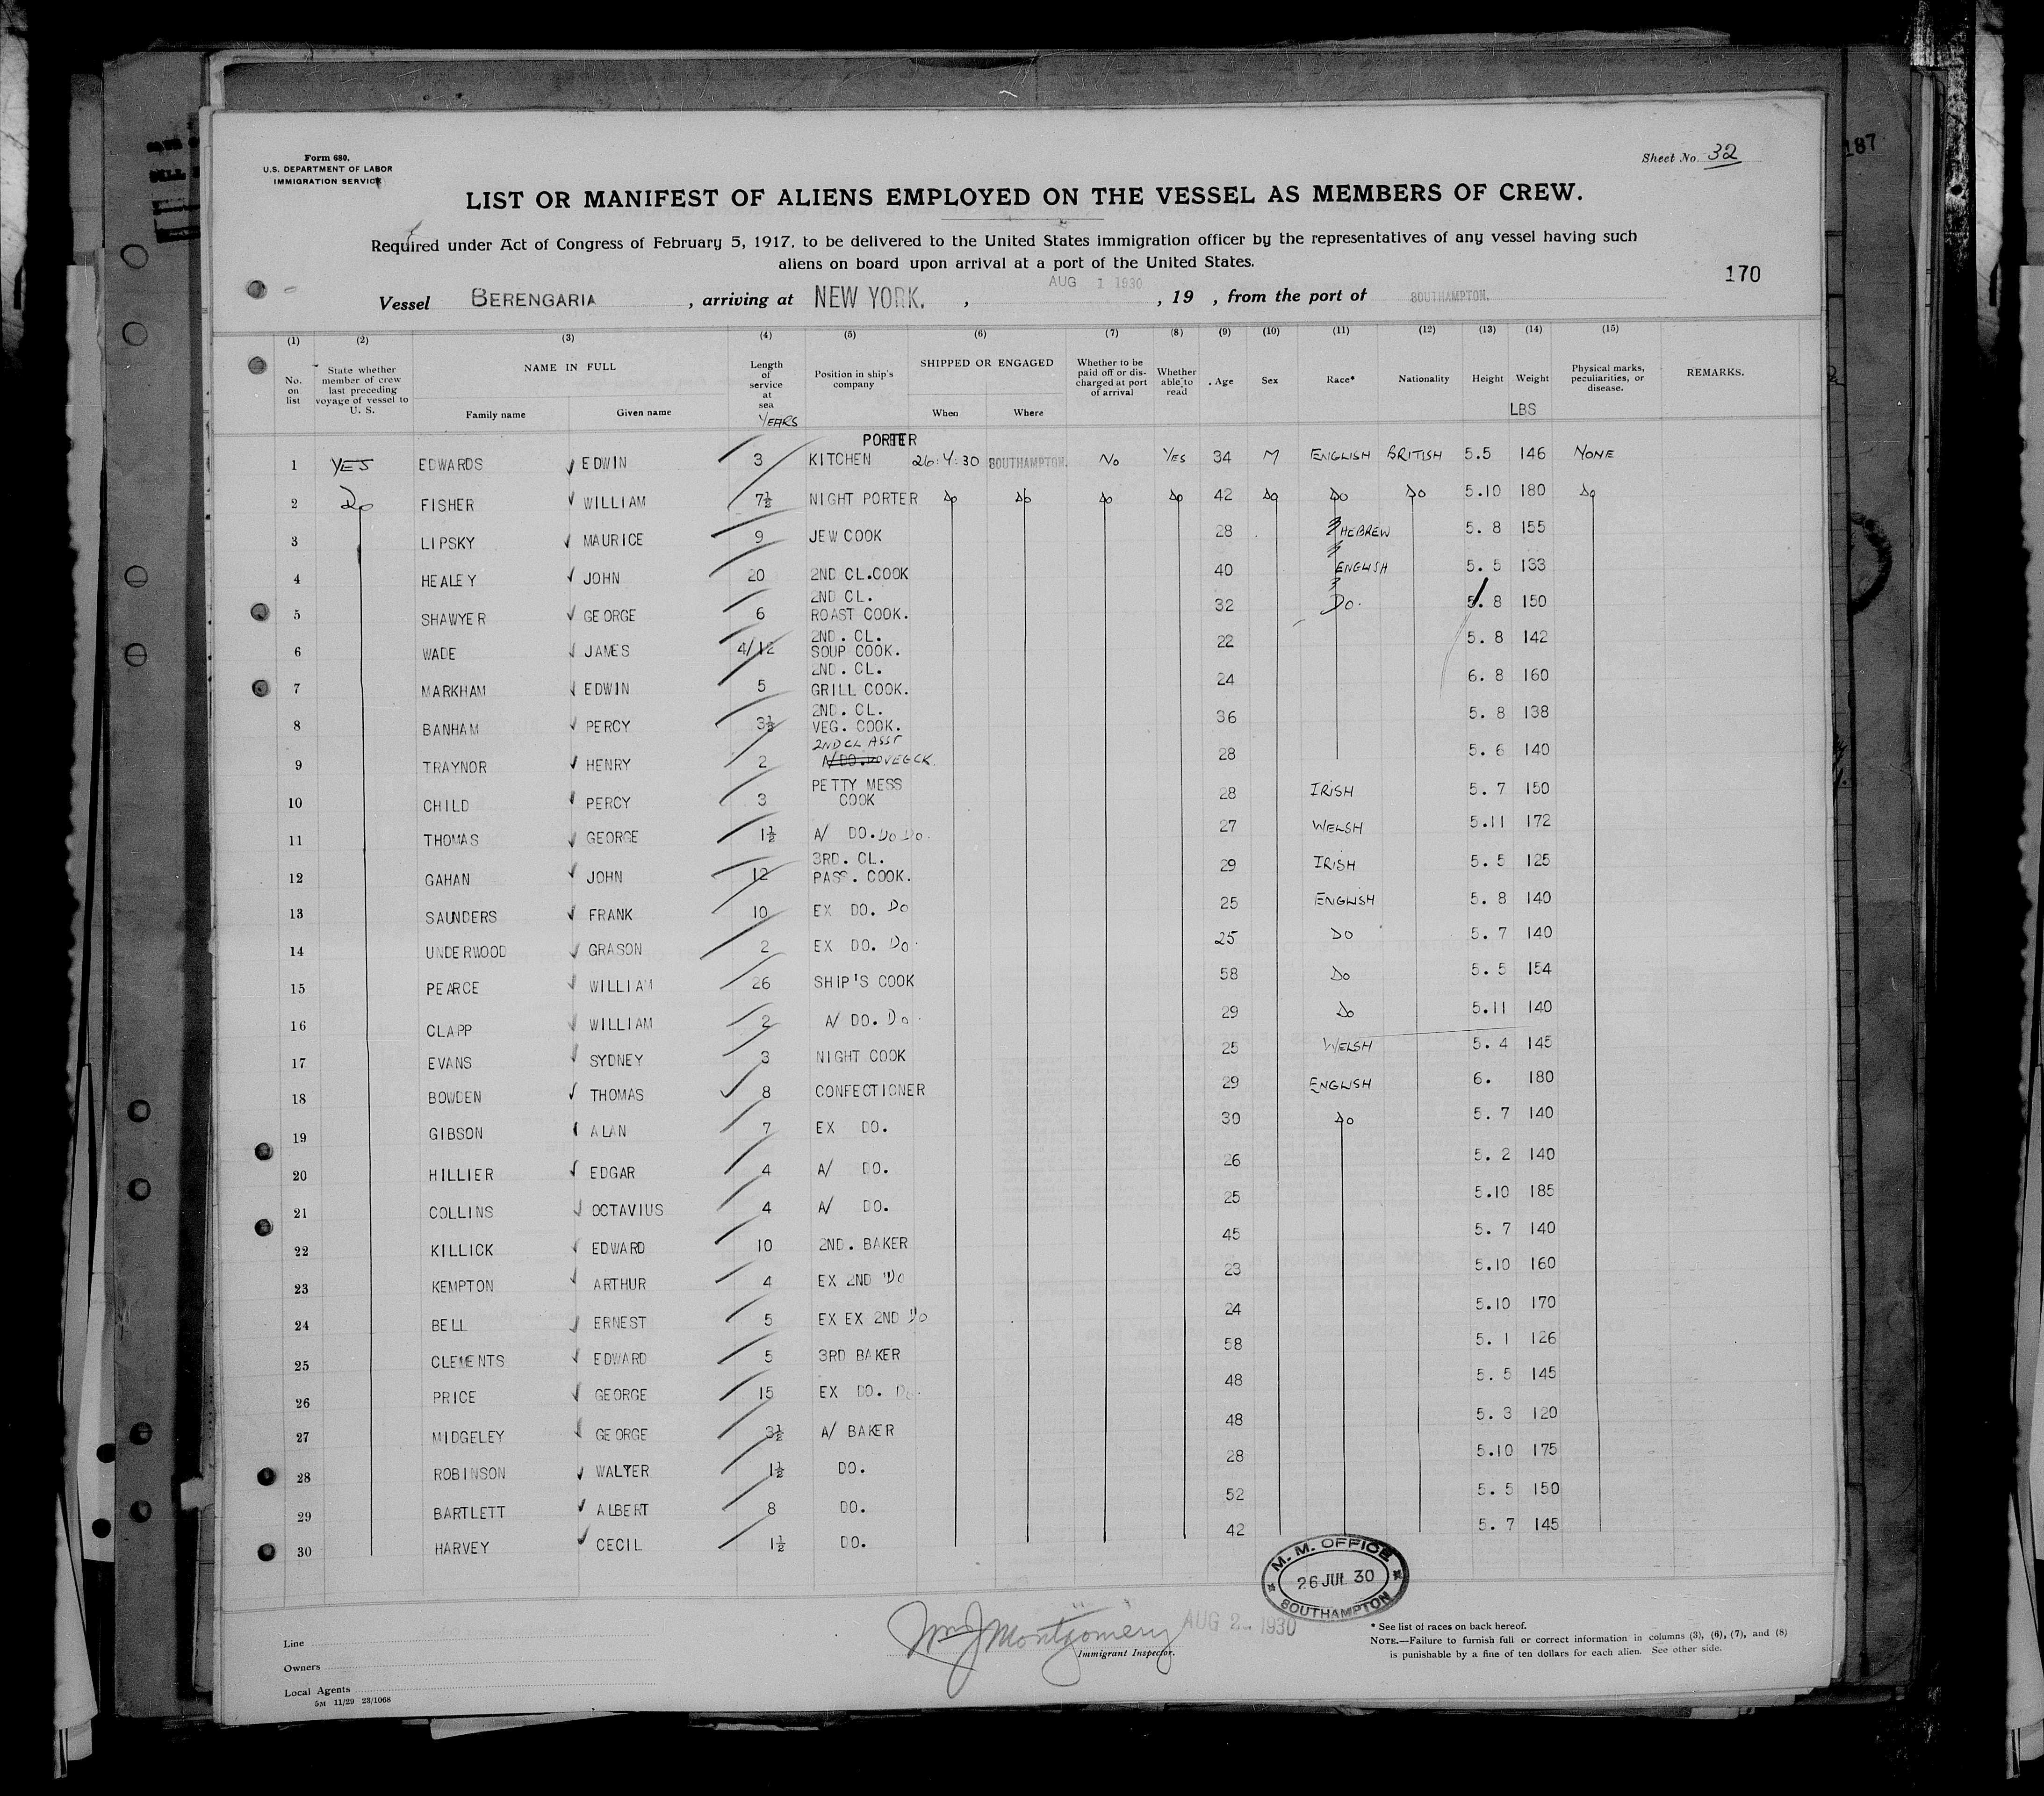 187
Form 680.
U.S. DEPARTMENT OF LABOR
IMMIGRATION SERVICE
Sheet No. 32
LIST OR MANIFEST OF ALIENS EMPLOYED ON THE VESSEL AS MEMBERS OF CREW.
Required under Act of Congress of February 5, 1917, to be delivered to the United States immigration officer by the representatives of any vessel having such
aliens on board upon arrival at a port of the United States.
170
Vessel BERENGARIA , arriving at NEW YORK. , AUG 1 1930 , 19 , from the port of SOUTHAMPTON.
(1) (2) (3) (4) (5) (6) (7) (8) (9) (10) (11) (12) (13) (14) (15)
No. on list State whether member of crew last preceding voyage of vessel to U. S. NAME IN FULL Family name Given name Length of service at sea YEARS Position in ship's company SHIPPED OR ENGAGED When Where Whether to be paid off or discharged at port of arrival Whether able to read Age Sex Race* Nationality Height Weight LBS Physical marks, peculiarities, or disease. REMARKS.
1 YES EDWARDS EDWIN 3 KITCHEN PORTER 26.4.30 SOUTHAMPTON. No YES 34 M ENGLISH BRITISH 5.5 146 NONE
2 Do FISHER WILLIAM 7½ NIGHT PORTER Do Do Do Do 42 Do Do Do 5.10 180 Do
3 LIPSKY MAURICE 9 JEW COOK 28 HEBREW 5. 8 155
4 HEALEY JOHN 20 2ND CL.COOK 40 ENGLISH 5. 5 133
5 SHAWYER GEORGE 6 2ND CL. ROAST COOK. 32 Do. 5. 8 150
6 WADE JAMES 4/12 2ND. CL. SOUP COOK. 22 5. 8 142
7 MARKHAM EDWIN 5 2ND. CL. GRILL COOK. 24 6. 8 160
8 BANHAM PERCY 3½ 2ND. CL. VEG. COOK. 36 5. 8 138
9 TRAYNOR HENRY 2 2ND CL ASST VEG CK. 28 5. 6 140
10 CHILD PERCY 3 PETTY MESS COOK 28 IRISH 5. 7 150
11 THOMAS GEORGE 1½ A/ DO. Do Do. 27 WELSH 5.11 172
12 GAHAN JOHN 12 3RD. CL. PASS. COOK. 29 IRISH 5. 5 125
13 SAUNDERS FRANK 10 EX DO. Do 25 ENGLISH 5. 8 140
14 UNDERWOOD GRASON 2 EX DO. Do. 25 DO 5. 7 140
15 PEARCE WILLIAM 26 SHIP'S COOK 58 Do 5. 5 154
16 CLAPP WILLIAM 2 A/ DO. Do. 29 Do 5.11 140
17 EVANS SYDNEY 3 NIGHT COOK 25 WELSH 5. 4 145
18 BOWDEN THOMAS 8 CONFECTIONER 29 ENGLISH 6. 180
19 GIBSON ALAN 7 EX DO. 30 Do 5. 7 140
20 HILLIER EDGAR 4 A/ DO. 26 5. 2 140
21 COLLINS OCTAVIUS 4 A/ DO. 25 5.10 185
22 KILLICK EDWARD 10 2ND. BAKER 45 5. 7 140
23 KEMPTON ARTHUR 4 EX 2ND Do 23 5.10 160
24 BELL ERNEST 5 EX EX 2ND Do 24 5.10 170
25 CLEMENTS EDWARD 5 3RD BAKER 58 5. 1 126
26 PRICE GEORGE 15 EX DO. Do. 48 5. 5 145
27 MIDGELEY GEORGE 3½ A/ BAKER 48 5. 3 120
28 ROBINSON WALTER 1½ DO. 28 5.10 175
29 BARTLETT ALBERT 8 DO. 52 5. 5 150
30 HARVEY CECIL 1½ DO. 42 5. 7 145
M. M. OFFICE
26 JUL 30
SOUTHAMPTON
Wm J Montgomery AUG 2 1930
Immigrant Inspector.
Line
Owners
Local Agents
5M 11/29 23/1068
* See list of races on back hereof.
NOTE.—Failure to furnish full or correct information in columns (3), (6), (7), and (8)
is punishable by a fine of ten dollars for each alien. See other side.